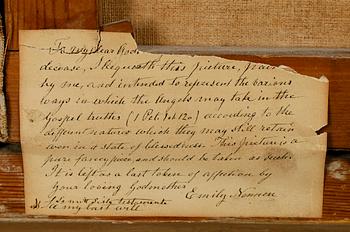 To my dear God
decease, I bequeath this picture, pain
by me, and intended to represent the various
ways in which the Angels may take in the
Gospel truths (1 Pet 1 v 12) according to the
different natures which they may still retain
even in a state of blessedness. This picture is a
pure fancy piece and should be taken as such.
It is left as a last token of affection by
your loving Godmother
Emily Nonnen
my last will